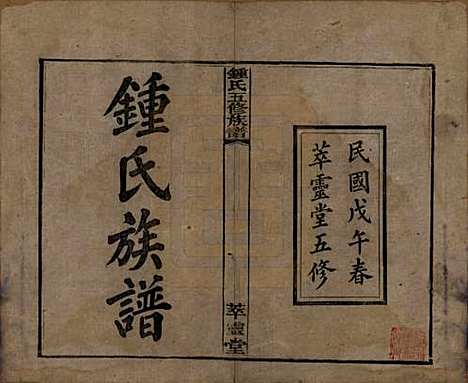 民國戊午春
萃靈堂五修
鍾氏五修族譜
萃靈堂
鍾氏族譜